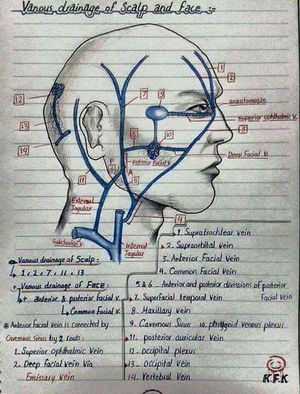 Vanous drainage of Scalp and Face :-
1
2
7
9
12
anastomosis
Superior ophthalmic v.
3
13
8
10
14
Posterior Facial v.
Deep Facial V.
P
A
11
6
External
Jugular
4
Subclavian V.
Internal
Jugular
Vanous drainage of Scalp:
1, 2, 7, 11, 13
Vanous drainage of FACE:
Anterior & posterior facial v.
Common Facial v.
Anterior Facial vein is connected by
Cavernous Sinus by 2 routs:
1. Superior ophthalmic Vein
2. Deep facial vein Via
Emissary vein
1 Supratrochlear vein
2. Supraorbital vein
3. Anterior Facial vein
4. Common Facial Vein
5 & 6. Anterior and posterior divisions of posterior
Facial vein
7. Superfacial temporal vein
8. Maxillary vein
9. Cavernous Sinus 10. pterygoid venous plexus
11. posterior auricular vein
12. occipital plexus
13. occipital vein
14. Vertebral vein
K.F.K